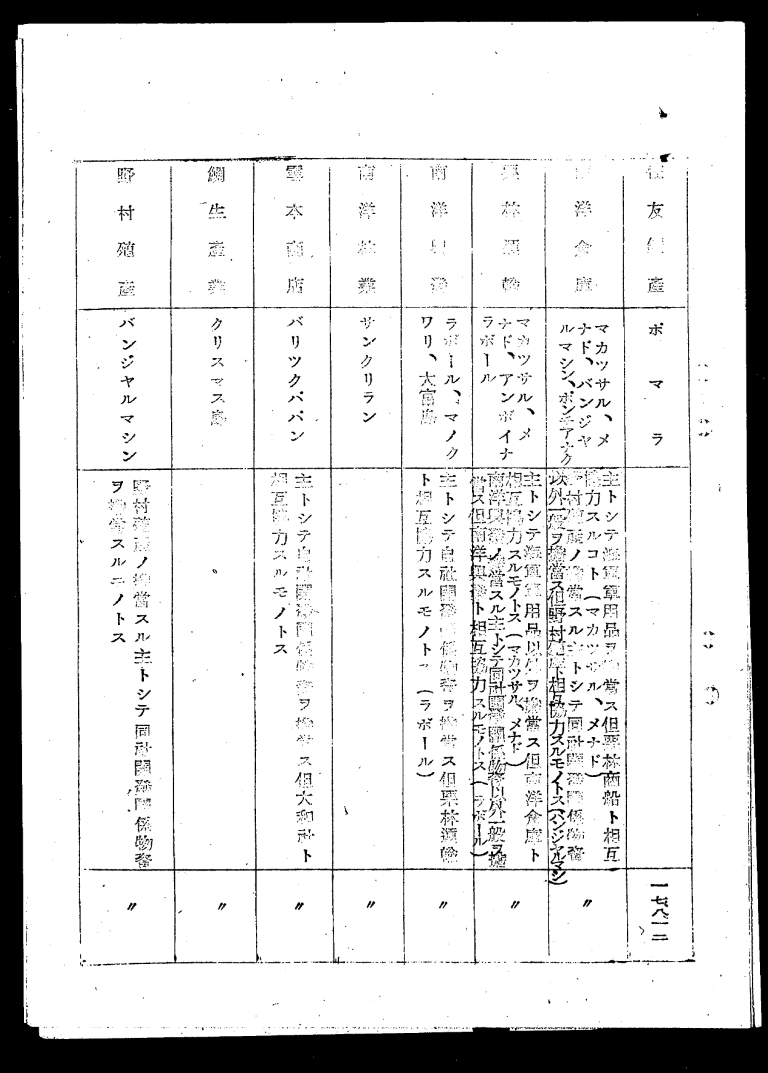 住友鑛産
ポマラ
一七、八、一二
南洋倉庫
マカツサル、メ
ナド、バンジヤ
ルマシン、ポンチアナク
主トシテ海軍軍用品ヲ擔當ス但栗林商船ト相互
協力スルコト(マカツサル、メナド)
野村殖産ノ擔當スル主トシテ同社開發關係物資
以外一般ヲ擔當ス但野村殖産ト相互協力スルモノトス(バンジヤルマシン)
〃
栗林運輸
マカツサル、メ
ナド、アンボイナ
ラボール
主トシテ海軍軍用品以外ヲ擔當ス但南洋倉庫ト
相互協力スルモノトス(マカツサル、メナド)
南洋興發ノ擔當スル主トシテ同社開發關係物資以外一般ヲ擔
當ス但南洋興發ト相互協力スルモノトス(ラボール)
〃
南洋興發
ラボール、マノク
ワリ、大宮島
主トシテ自社開發關係物資ヲ擔當ス但栗林運輸
ト相互協力スルモノトス(ラボール)
〃
南洋林業
サンクリラン
〃
雲本商店
バリツクパパン
主トシテ自社開發關係物資ヲ擔當ス但大和社ト
相互協力スルモノトス
〃
鯛生産業
クリスマス島
〃
野村殖産
バンジヤルマシン
野村殖産ノ擔當スル主トシテ同社開發關係物資
ヲ擔當スルモノトス
〃